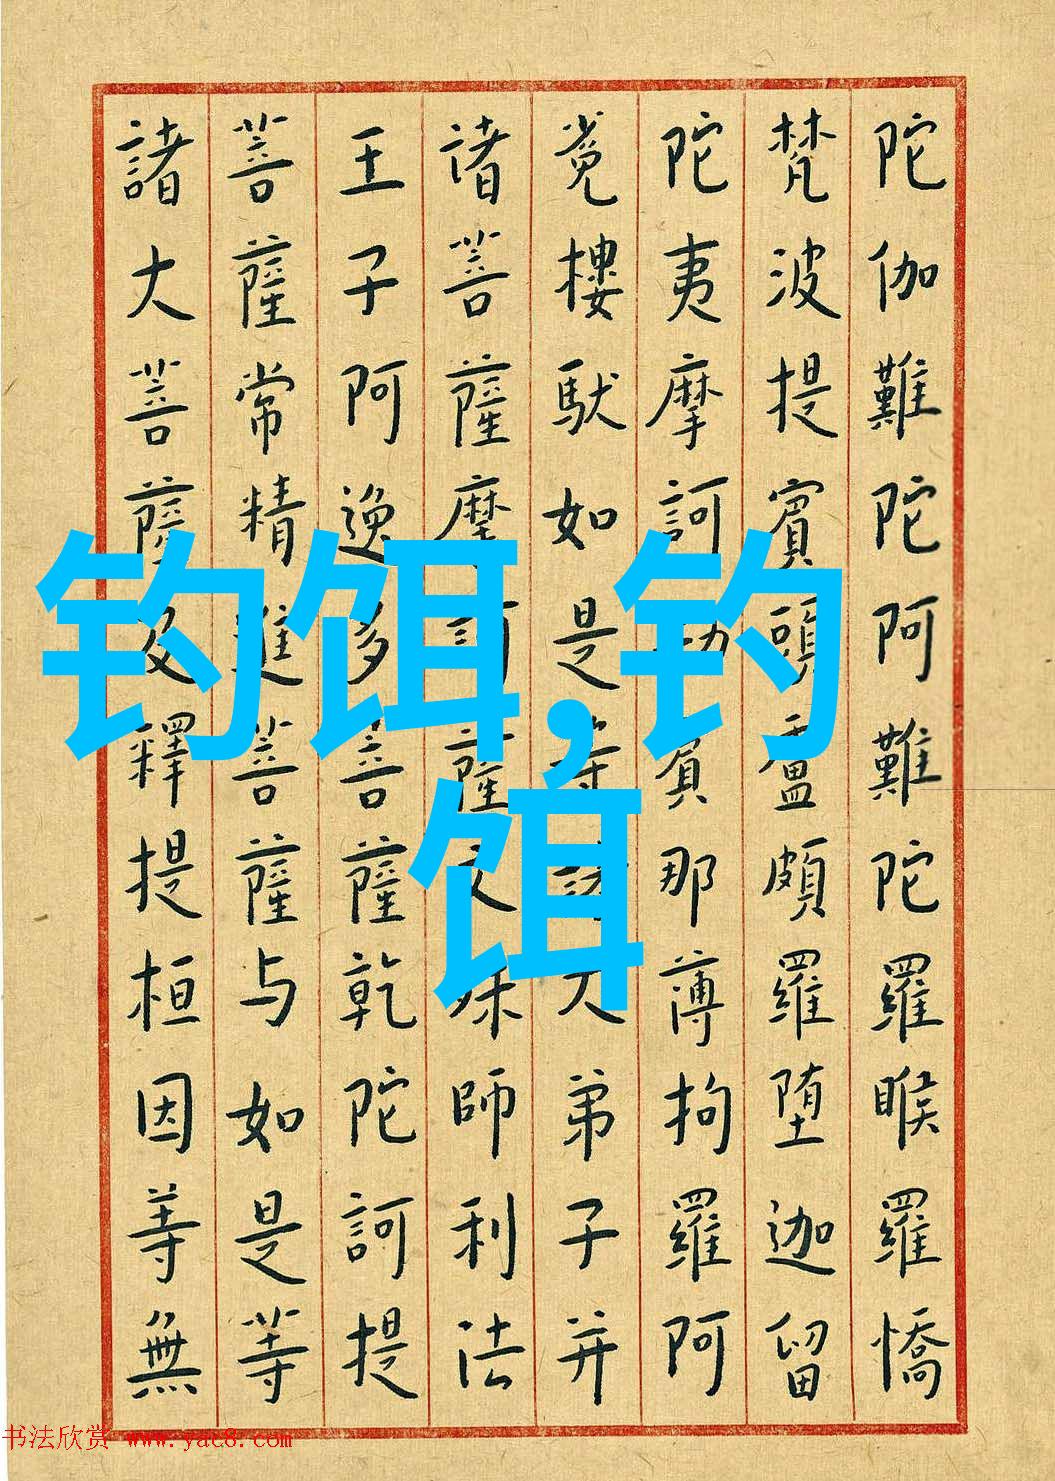 陀伽難陀阿難陀羅睺羅憍
梵波提賓頭盧頗羅堕迦留
陀夷摩訶劫賓那薄拘羅阿
㝹樓馱如是等諸大弟子并
诸菩薩摩訶薩文殊師利法
王子阿逸多菩薩乾陀訶提
菩薩常精進菩薩与如是等
諸大菩薩及釋提桓因等無
钓饵,钓
饵
书法欣赏 www.yac8.com